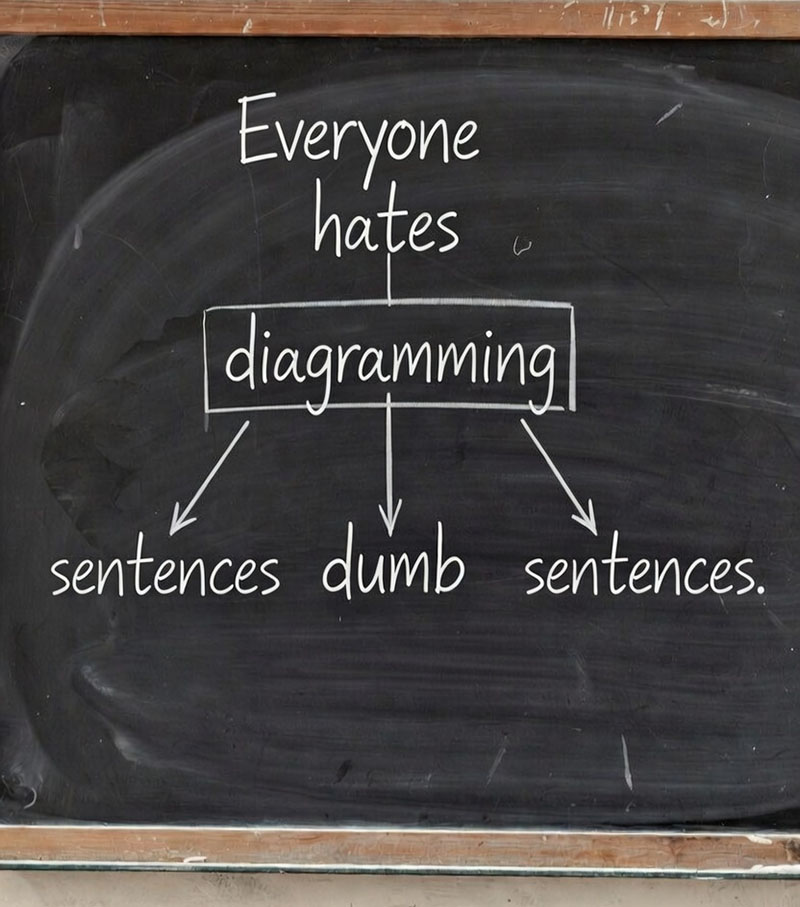 Everyone
hates
diagramming
sentences dumb sentences.